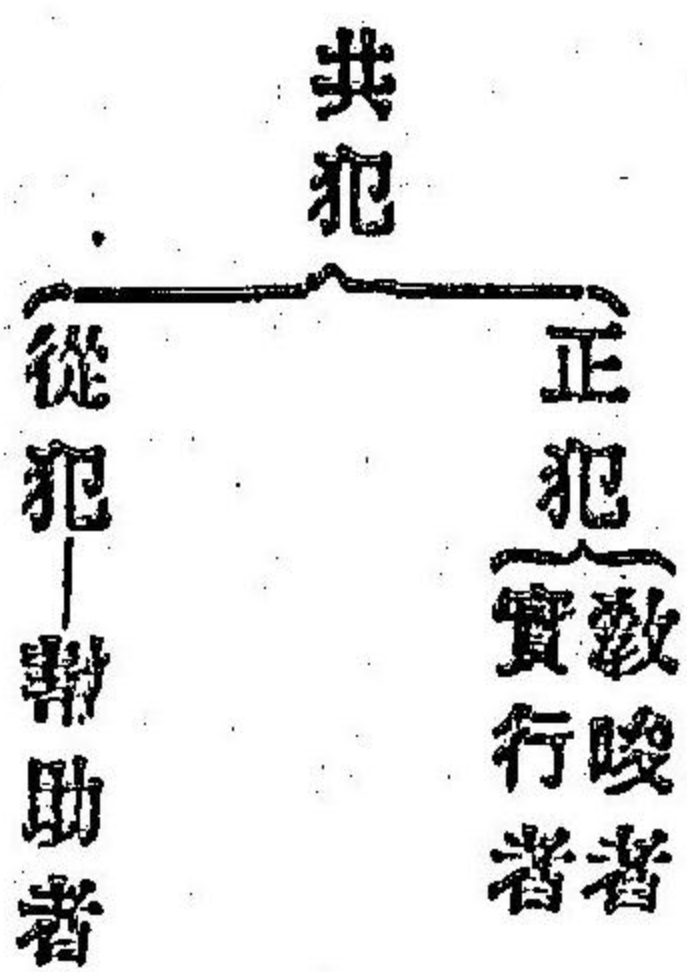 共犯
正犯
教唆者
實行者
從犯
幇助者